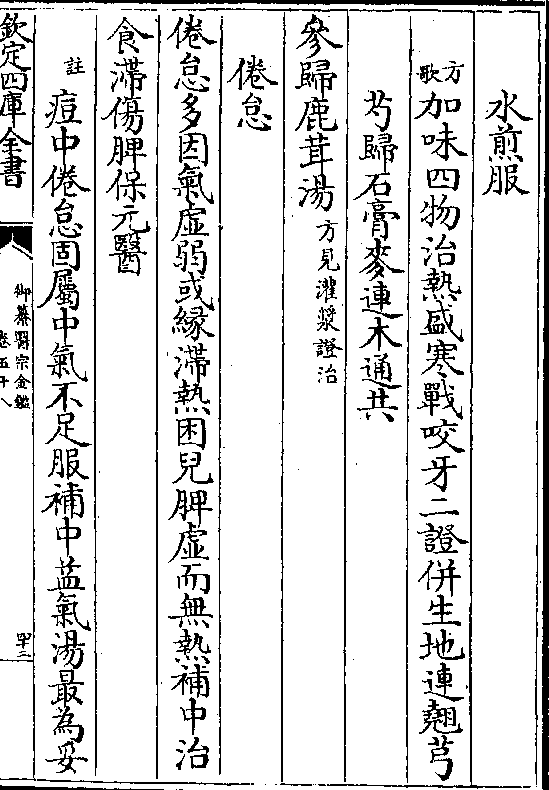 水煎服
方歌加味四物治熱盛寒戰咬牙二證併生地連翹芎
芍歸石膏麥連木通共
參歸鹿茸湯方見灌漿證治
倦怠
倦怠多因氣虛弱或緣滯熱困兒脾虛而無熱補中治
食滯傷脾保元醫
註痘中倦怠固屬中氣不足服補中益氣湯最為妥
欽定四庫全書
御纂醫宗金鑑
卷五十八
四十二